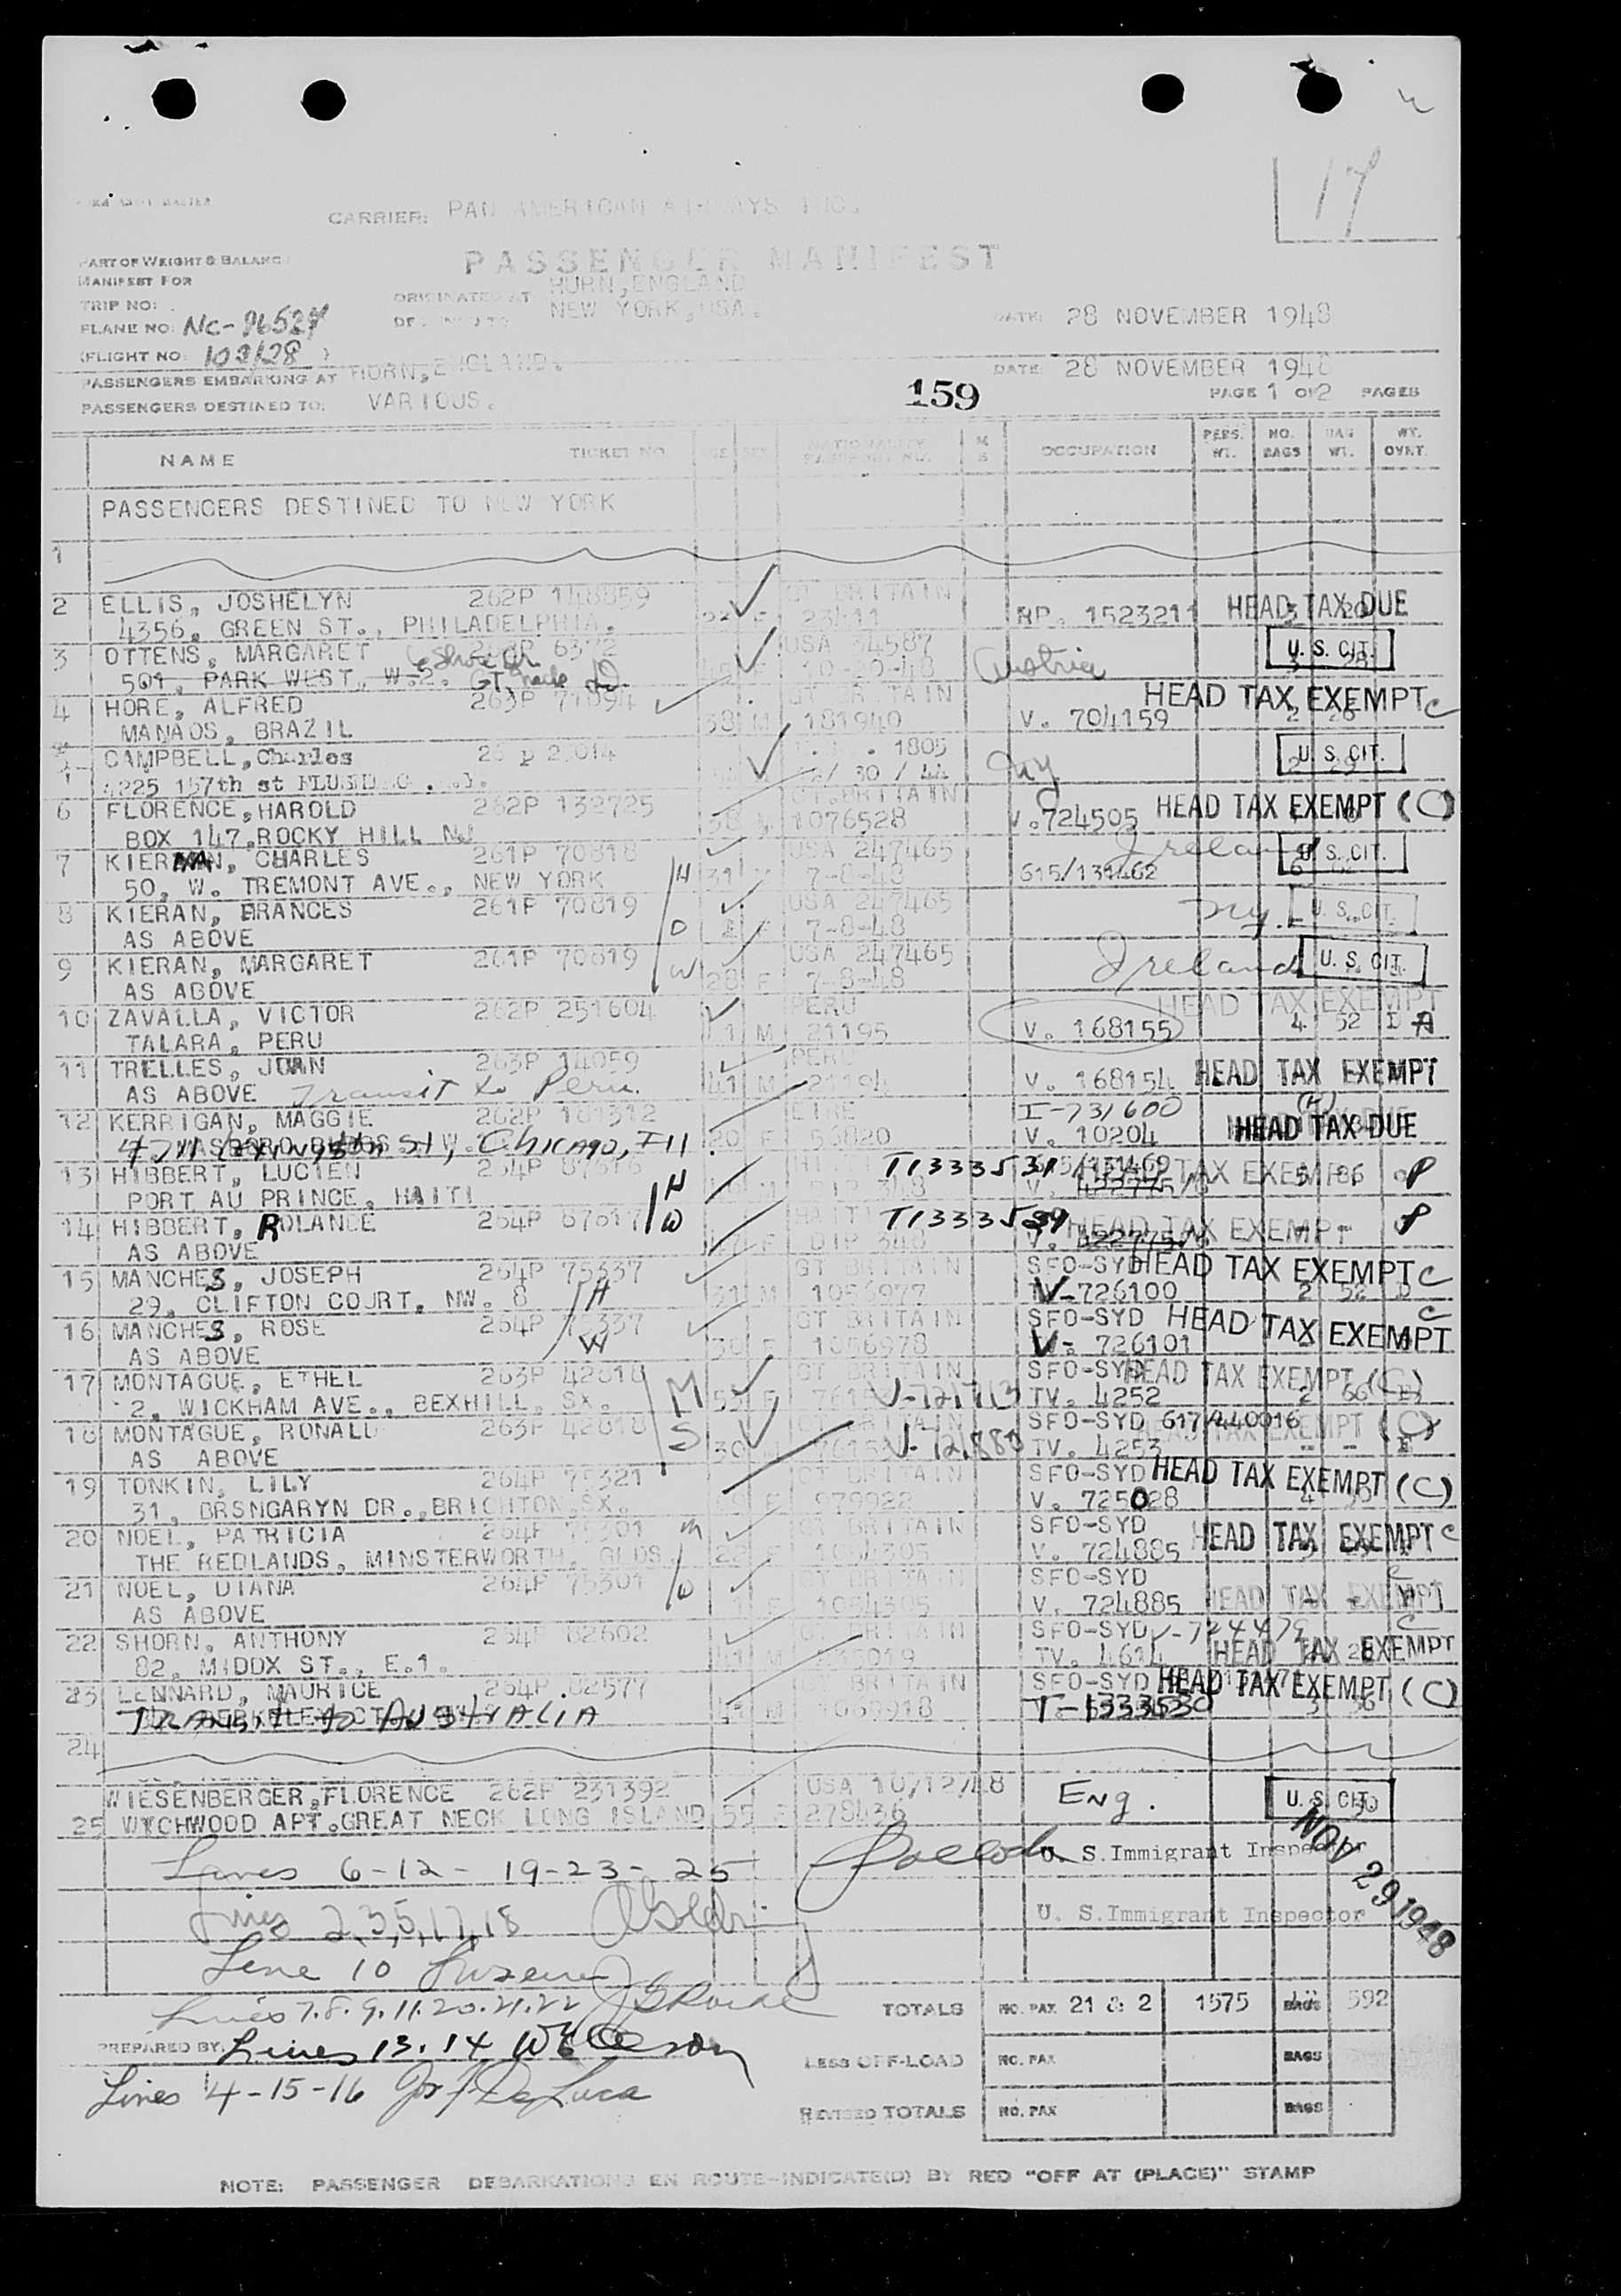 17
CARRIER: PAN AMERICAN AIRWAYS INC.
PASSENGER MANIFEST
PART OF WEIGHT & BALANCE
MANIFEST FOR
HURN, ENGLAND
TRIP NO:
ORIGINATED AT
NEW YORK, USA.
DATE: 28 NOVEMBER 1948
PLANE NO: NC-
(FLIGHT NO: 102/28 )
PASSENGERS EMBARKING AT HURN, ENGLAND.
DATE: 28 NOVEMBER 1948
PASSENGERS DESTINED TO: VARIOUS.
159
PAGE 1 OF 2 PAGES
NAME TICKET NO. AGE SEX NATIONALITY PASSPORT NO. M S OCCUPATION PERS. WT. NO. BAGS BAG WT. WT. OVNT.
PASSENGERS DESTINED TO NEW YORK
1
2 ELLIS, JOSHELYN 262P 148859 GT BRITAIN
4356, GREEN ST., PHILADELPHIA. F 23411 RP. 1523211 HEAD TAX DUE
3 OTTENS, MARGARET 6372 USA 34587 U. S. CIT.
501, PARK WEST, W.2. 10-20-48 Austria
4 HORE, ALFRED 263P 71094 GT BRITAIN HEAD TAX EXEMPT C
MANAOS, BRAZIL 38 M 181940 V. 704159 2 26
CAMPBELL, Charles 1805 U. S. CIT.
4225 157th st 30 / 44 NY
6 FLORENCE, HAROLD 262P 132725 GT.BRITAIN
BOX 147, ROCKY HILL NJ 38 M 1076528 V.724505 HEAD TAX EXEMPT (C)
7 KIERNAN, CHARLES 261P 70818 USA 247465 Ireland U. S. CIT.
50, W. TREMONT AVE., NEW YORK H 31 7-8-48 615/131462
8 KIERAN, FRANCES 261P 70819 USA 247465 NY. U. S. CIT.
AS ABOVE D F 7-8-48
9 KIERAN, MARGARET 261P 70819 USA 247465 Ireland U. S. CIT.
AS ABOVE W 28 F 7-8-48
10 ZAVALLA, VICTOR 262P 251604 PERU HEAD TAX EXEMPT
TALARA, PERU M 21195 V. 168155 4 52 A
11 TRELLES, JUAN 263P 14059 PERU
AS ABOVE Transit to Peru. 41 M 21194 V. 168154 HEAD TAX EXEMPT
12 KERRIGAN, MAGGIE 262P 181312 EIRE I-731600
Lexington St, Chicago, Ill. 20 F 56820 V. 10204 HEAD TAX DUE
13 HIBBERT, LUCIEN 264P 87616 HEAD TAX EXEMPT 5 86 P
PORT AU PRINCE, HAITI H M DIP 348
14 HIBBERT, ROLANDE 264P 87617 HAITI HEAD TAX EXEMPT P
AS ABOVE W F DIP 348
15 MANCHES, JOSEPH 264P 75337 GT BRITAIN SFO-SYD HEAD TAX EXEMPT C
29, CLIFTON COURT, NW. 8 H 31 M 1056977 V-726100 2 52
16 MANCHES, ROSE 264P 75337 GT BRITAIN SFO-SYD HEAD TAX EXEMPT C
AS ABOVE W 30 F 1056978 V- 726101
17 MONTAGUE, ETHEL 263P 42818 GT BRITAIN SFO-SYD HEAD TAX EXEMPT (C)
2, WICKHAM AVE., BEXHILL, SX. M 55 F TV. 4252 2 66
18 MONTAGUE, RONALD 263P 42818 GT BRITAIN SFO-SYD 617/440016 HEAD TAX EXEMPT (C)
AS ABOVE S 30 TV. 4253
19 TONKIN, LILY 264P 75321 GT BRITAIN SFO-SYD HEAD TAX EXEMPT (C)
31, BRSNGARYN DR., BRIGHTON, SX. F 979922 V. 725028
20 NOEL, PATRICIA 264P 75301 M GT BRITAIN SFO-SYD HEAD TAX EXEMPT C
THE REDLANDS, MINSTERWORTH, GLOS. 22 F 1054305 V. 724885
21 NOEL, DIANA 264P 75301 D GT BRITAIN SFO-SYD C
AS ABOVE F 1054305 V. 724885 HEAD TAX EXEMPT
22 SHORN, ANTHONY 264P 82602 GT BRITAIN SFO-SYD V-724479 C
82, MIDDX ST., E.1. 41 M TV. 4614 HEAD TAX EXEMPT
23 LENNARD, MAURICE 264P 82577 BRITAIN SFO-SYD HEAD TAX EXEMPT (C)
TRANSIT TO AUSTRALIA M T-1333530
24
WIESENBERGER, FLORENCE 262P 231392 USA 10/12/48 Eng. U. S. CIT.
25 WYCHWOOD APT. GREAT NECK LONG ISLAND 55 F 278436
Lines 6-12-19-23-25 U. S. Immigrant Inspector
NOV 29 1948
Lines 2,3,5,17,18 U. S. Immigrant Inspector
Line 10
Lines 7.8.9.11.20.21.22
TOTALS NO. PAX 21 & 2 1575 BAGS 592
PREPARED BY: Lines 13.14
LESS OFF-LOAD NO. PAX BAGS
Lines 4-15-16 Jos F DeLuca
REVISED TOTALS NO. PAX BAGS
NOTE: PASSENGER DEBARKATIONS EN ROUTE-INDICATE(D) BY RED "OFF AT (PLACE)" STAMP